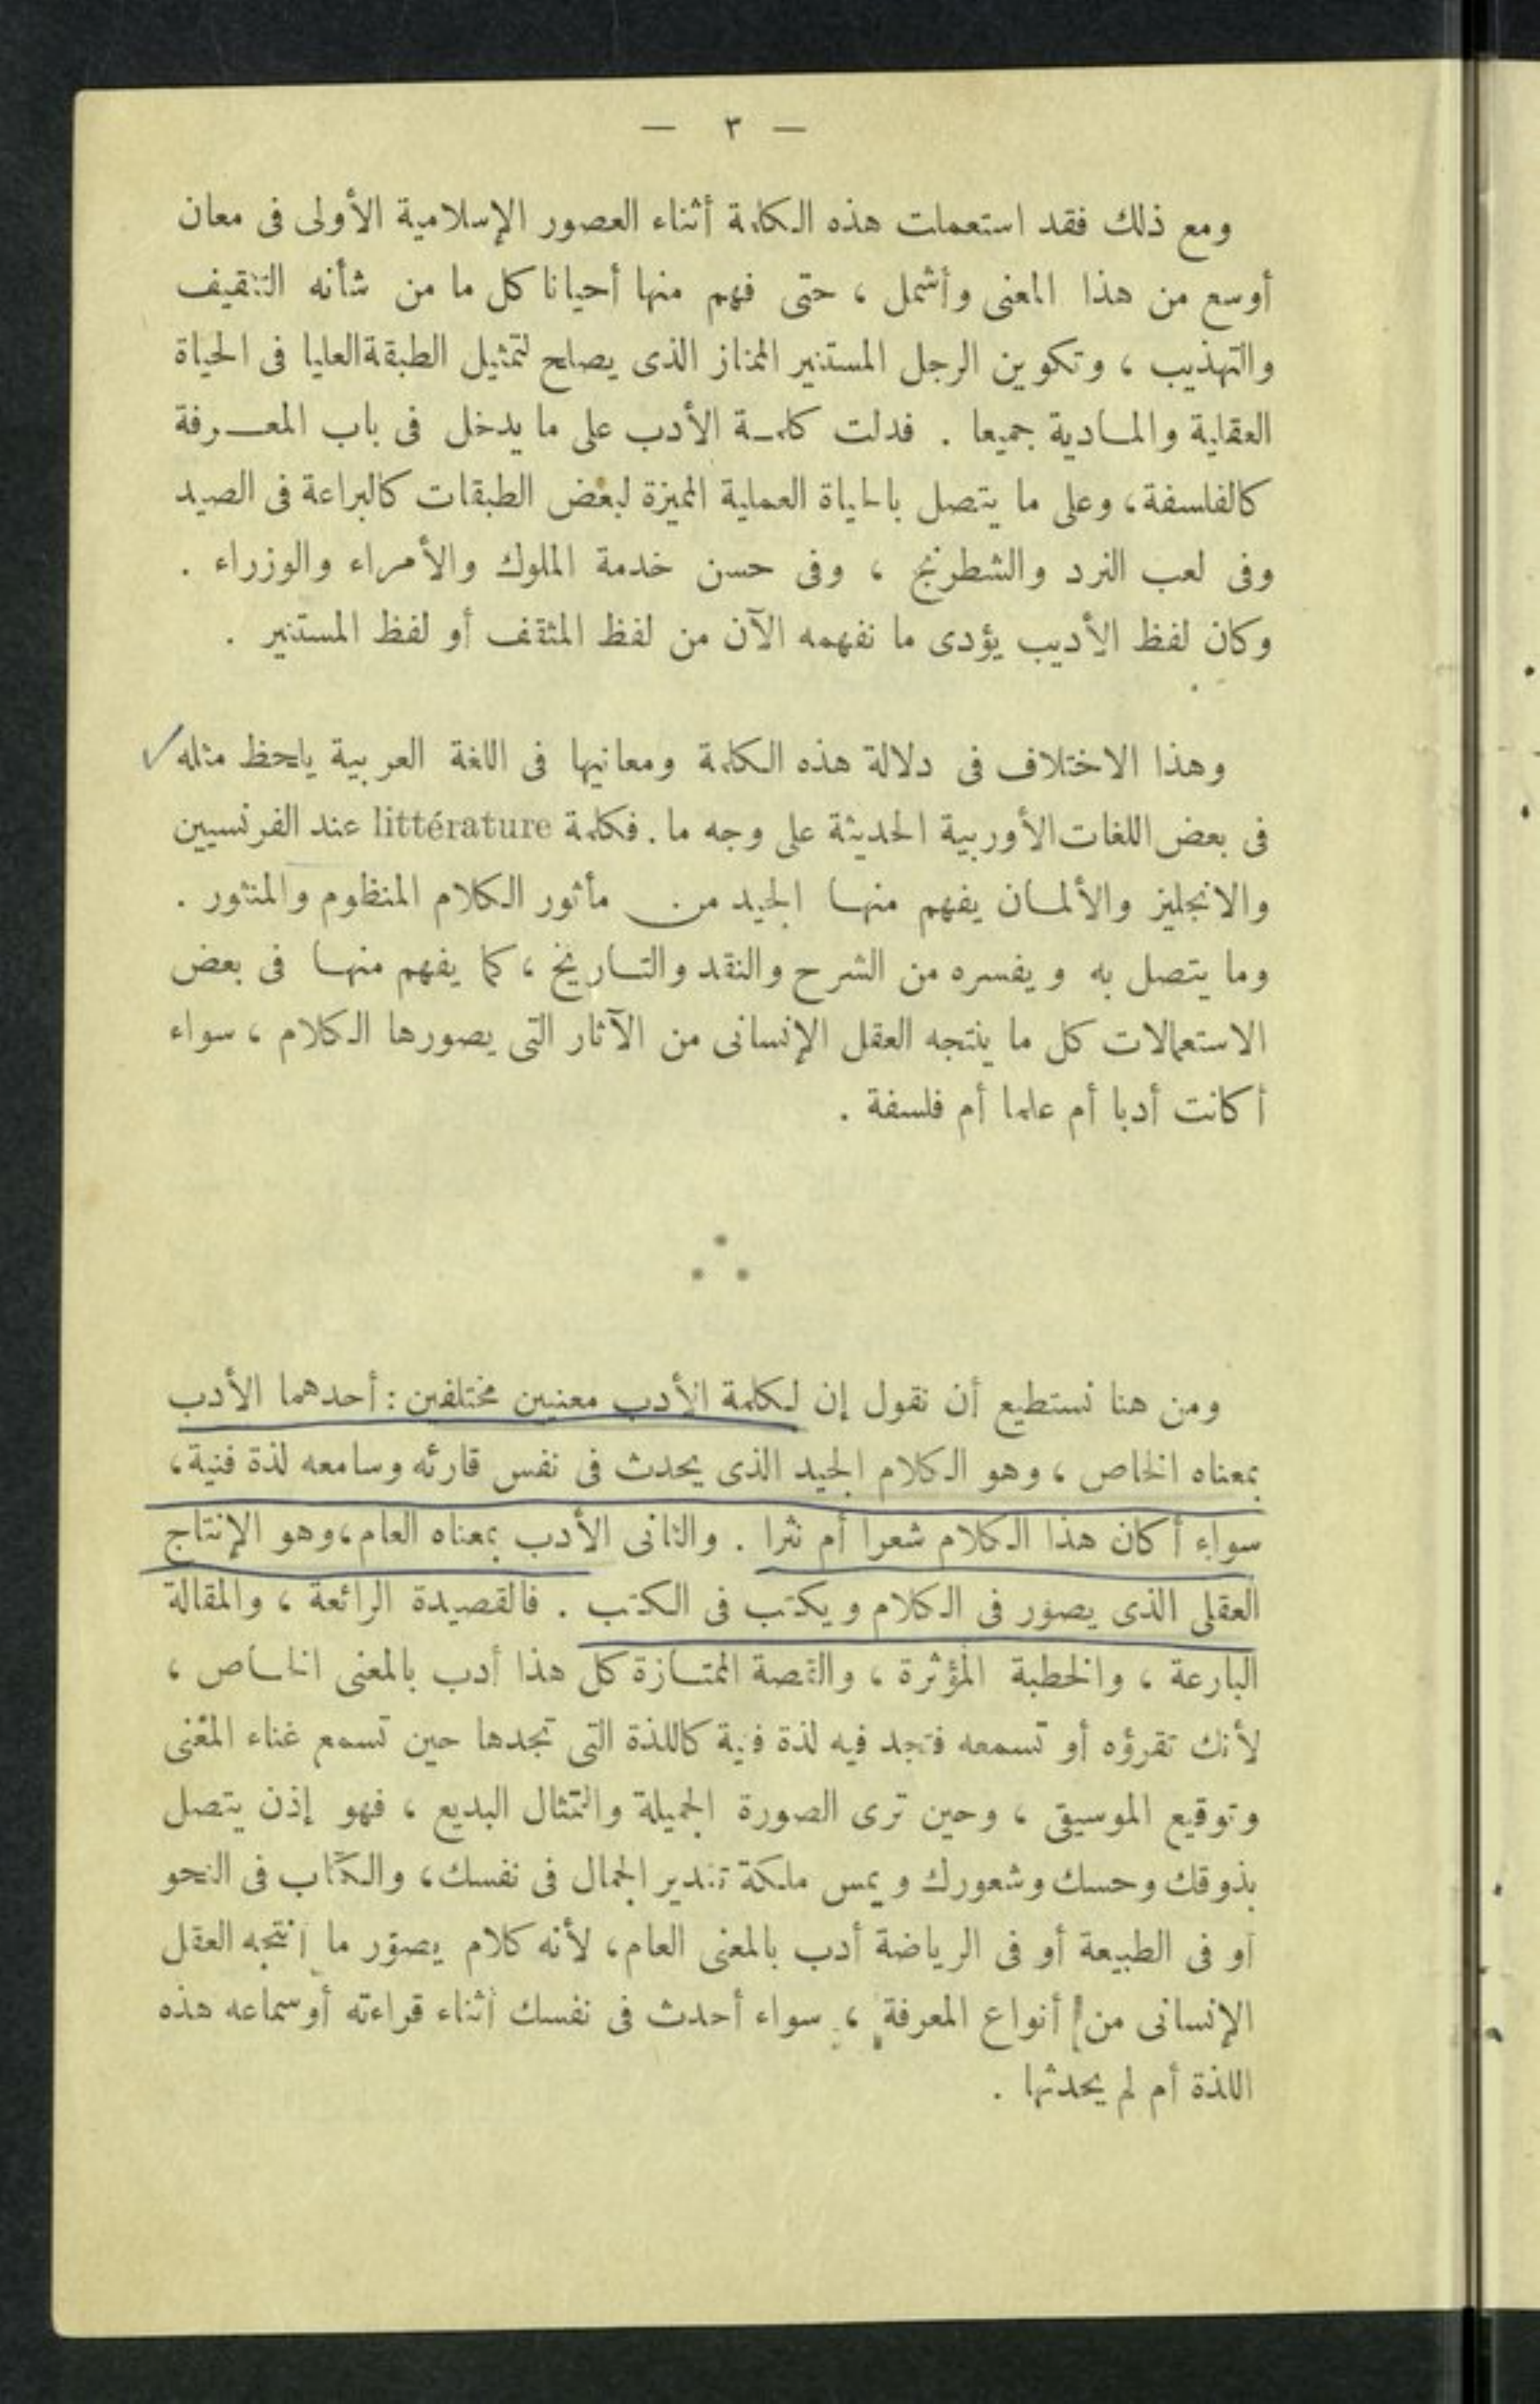 — ٣ —
ومع ذلك فقد استعملت هذه الكلمة أثناء العصور الإسلامية الأولى فى معان
أوسع من هذا المعنى وأشمل ، حتى فهم منها أحيانا كل ما من شأنه التثقيف
والتهذيب ، وتكوين الرجل المستنير الممتاز الذى يصلح لتمثيل الطبقة العليا فى الحياة
العقلية والمادية جميعا . فدلت كلمة الأدب على ما يدخل فى باب المعرفة
كالفلسفة ، وعلى ما يتصل بالحياة العملية المميزة لبعض الطبقات كالبراعة فى الصيد
وفى لعب النرد والشطرنج ، وفى حسن خدمة الملوك والأمراء والوزراء .
وكان لفظ الأديب يؤدى ما نفهمه الآن من لفظ المثقف أو لفظ المستنير .
وهذا الاختلاف فى دلالة هذه الكلمة ومعانيها فى اللغة العربية يلحظ مثله
فى بعض اللغات الأوربية الحديثة على وجه ما . فكلمة littérature عند الفرنسيين
والانجليز والألمان يفهم منها الجيد من مأثور الكلام المنظوم والمنثور .
وما يتصل به ويفسره من الشرح والنقد والتاريخ ، كما يفهم منها فى بعض
الاستعمالات كل ما ينتجه العقل الإنسانى من الآثار التى يصورها الكلام ، سواء
أكانت أدبا أم علما أم فلسفة .
ومن هنا نستطيع أن نقول إن لكلمة الأدب معنيين مختلفين : أحدهما الأدب
بمعناه الخاص ، وهو الكلام الجيد الذى يحدث فى نفس قارئه وسامعه لذة فنية ،
سواء أكان هذا الكلام شعرا أم نثرا . والثانى الأدب بمعناه العام ، وهو الإنتاج
العقلى الذى يصور فى الكلام ويكتب فى الكتب . فالقصيدة الرائعة ، والمقالة
البارعة ، والخطبة المؤثرة ، والقصة الممتازة كل هذا أدب بالمعنى الخاص ،
لأنك تقرؤه أو تسمعه فتجد فيه لذة فنية كاللذة التى تجدها حين تسمع غناء المغنى
وتوقيع الموسيقى ، وحين ترى الصورة الجميلة والتمثال البديع ، فهو إذن يتصل
بذوقك وحسك وشعورك ويمس ملكة تقدير الجمال فى نفسك ، والكتاب فى النحو
أو فى الطبيعة أو فى الرياضة أدب بالمعنى العام ، لأنه كلام يصوّر ما أنتجه العقل
الإنسانى من أنواع المعرفة ، سواء أحدث فى نفسك أثناء قراءته أو سماعه هذه
اللذة أم لم يحدثها .